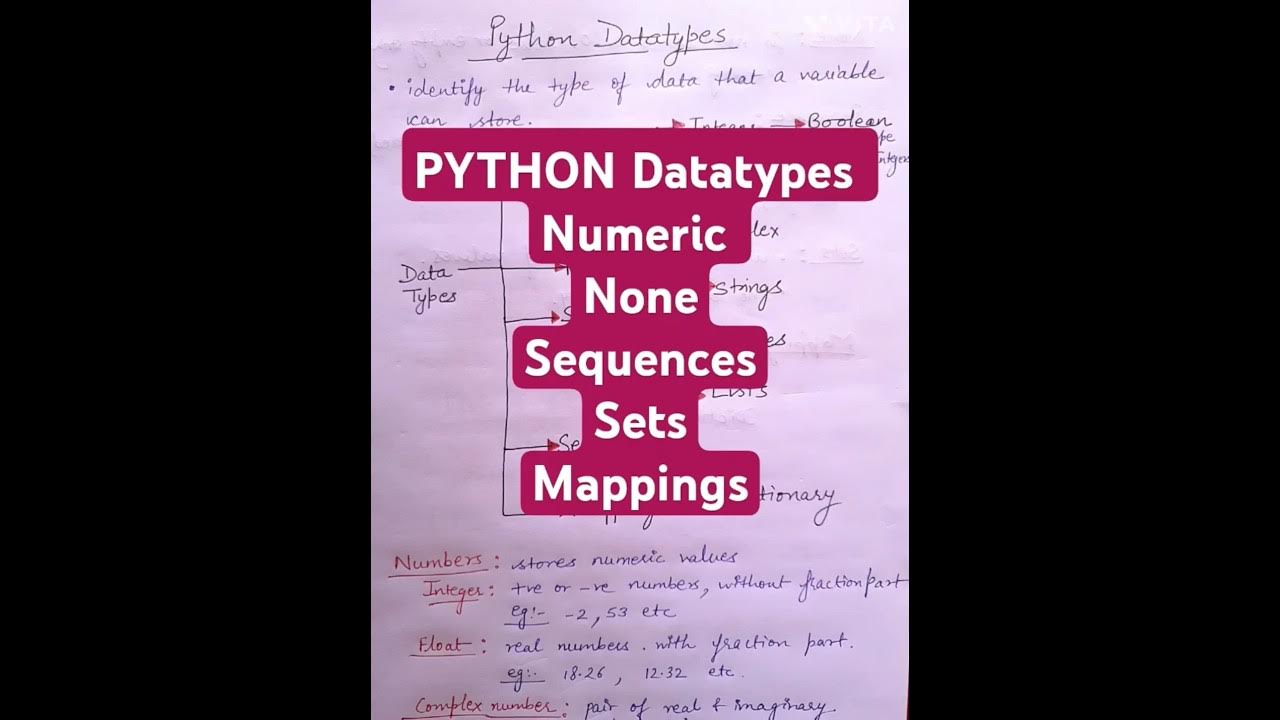 VITA
Python Datatypes
• identify the type of data that a variable
can store.
Boolean
PYTHON Datatypes
Numeric
None
Sequences
Sets
Mappings
Data
Types
Strings
Lists
Numbers: stores numeric values
Integer: +ve or -ve numbers, without fraction part
eg:- -2, 53 etc
Float: real numbers. with fraction part.
eg:. 18.26, 12.32 etc.
Complex number: pair of real & imaginary.